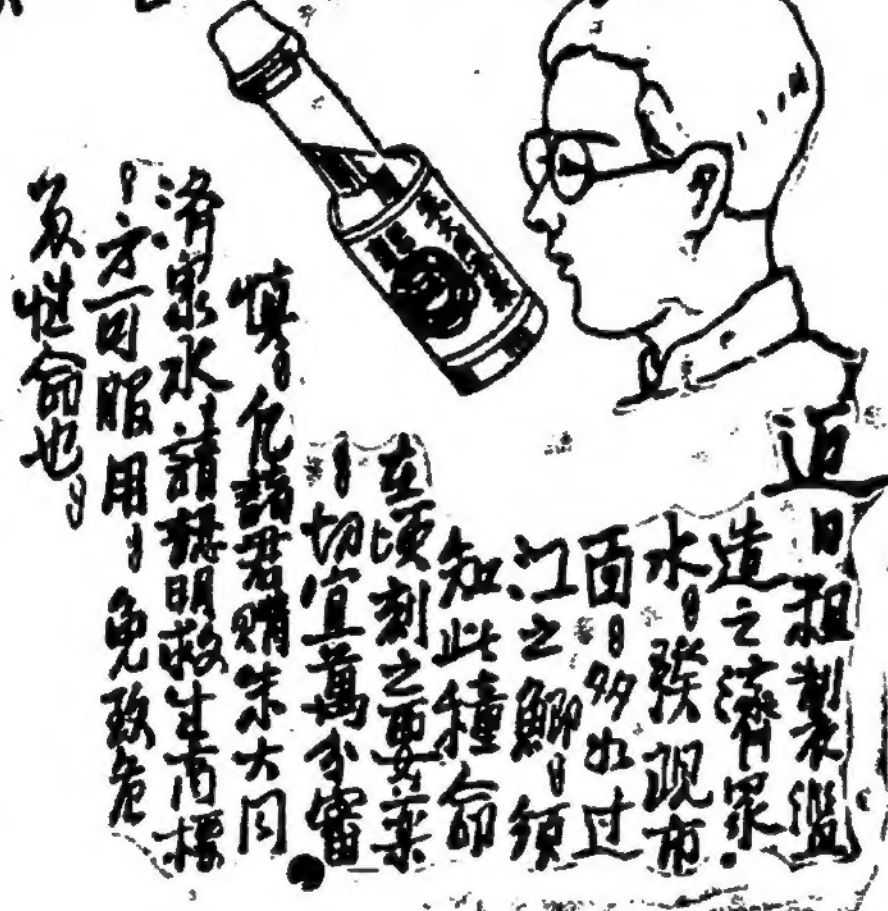 近
日粗製濫
造之濟眾
水，發現市
面，多如过
江之鯽，須
知此種命
在頃刻之要薬
，切宜萬分審
慎，凡諸君購朱大同
濟眾水，請認明救生商標
，方可服用，免致危
及性命也，